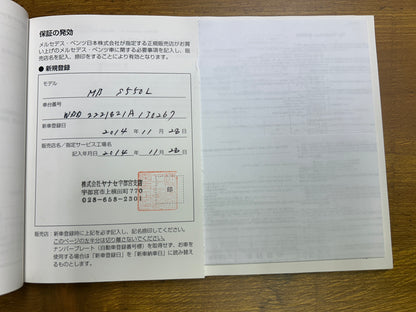 保証の発効
メルセデス・ベンツ日本株式会社が指定する正規販売店がお買
い上げのメルセデス・ベンツ車に関する必要事項を記入し、販
売店名を記入、捺印をすることにより有効となります。
● 新規登録
モデル
MB S550L
車台番号
WDD 2221821A 130267
新車登録日
2014年 11月 28日
販売店名/指定サービス工場名
記入年月日 2014年 11月 28日
株式会社ヤナセ宇都宮支店
宇都宮市上横田町770
028-658-2301
印
販売店:新車登録時に上記を必ず記入し、記名捺印してください。
このページの左半分は切り離さないでください。
ナンバープレート(自動車登録番号標)を取得せず、お車を
使用する場合は「新車登録日」を「新車納車日」に読み替え
るものとします。